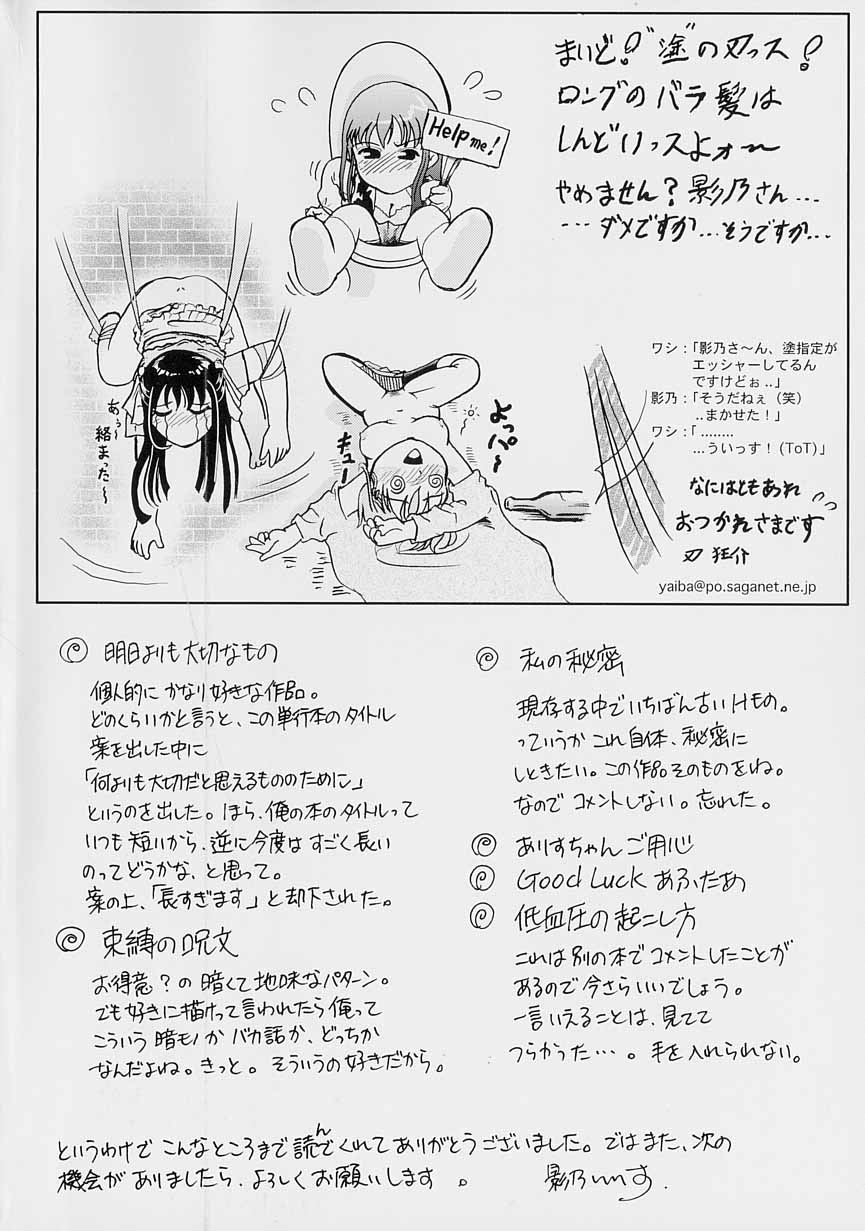 まいど!"塗"の刃っス!
ロングのバラ髪は
しんどいっスよォ〜
やめません?影乃さん…
…ダメですか…そうですか…
Help me!
あぅ〜
絡まった〜
キュー
よっパ〜
ワシ:「影乃さ〜ん、塗指定が
エッシャーしてるん
ですけどぉ..」
影乃:「そうだねぇ(笑)
..まかせた!」
ワシ:「........
...ういっす!(ToT)」
なにはともあれ
おつかれさまです
刃 狂介
yaiba@po.saganet.ne.jp
明日よりも大切なもの
個人的にかなり好きな作品。
どのくらいかと言うと、この単行本のタイトル
案を出した中に
「何よりも大切だと思えるもののために」
というのを出した。ほら、俺の本のタイトルって
いつも短いから、逆に今度はすごく長い
のってどうかな、と思って。
案の上、「長すぎます」と却下された。
束縛の呪文
お得意?の暗くて地味なパターン。
でも好きに描けって言われたら俺って
こういう暗モノかバカ話か、どっちか
なんだよね。きっと。そういうの好きだから。
私の秘密
現存する中でいちばん古いHもの。
っていうかこれ自体、秘密に
しときたい。この作品そのものをね。
なのでコメントしない。忘れた。
ありすちゃんご用心
Good Luck あふたあ
低血圧の起こし方
これは別の本でコメントしたことが
あるので今さらいいでしょう。
一言いえることは、見てて
つらかった…。手を入れられない。
というわけでこんなところまで読んでくれてありがとうございました。ではまた、次の
機会がありましたら、よろしくお願いします。
影乃いりす.